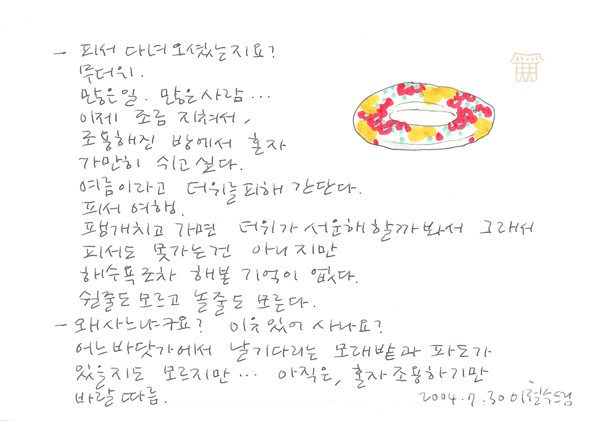 - 피서 다녀오셨는지요?
무더위.
많은일. 많은사람...
이제 조금 지쳐서,
조용해진 방에서 혼자
가만히 쉬고싶다.
여름이라고 더위를피해 간단다.
피서 여행.
팽개치고 가면 더위가 서운해할까봐서 그래서
피서도 못가는건 아니지만
해수욕조차 해본 기억이 없다.
쉴줄도모르고 놀줄도 모른다.
- 왜사느냐구요? 이유있어 사나요?
어느바닷가에서 날기다리는 모래밭과 파도가
있을지도 모르지만... 아직은, 혼자조용하기만
바랄 따름.
2004.7.30 이철수드림